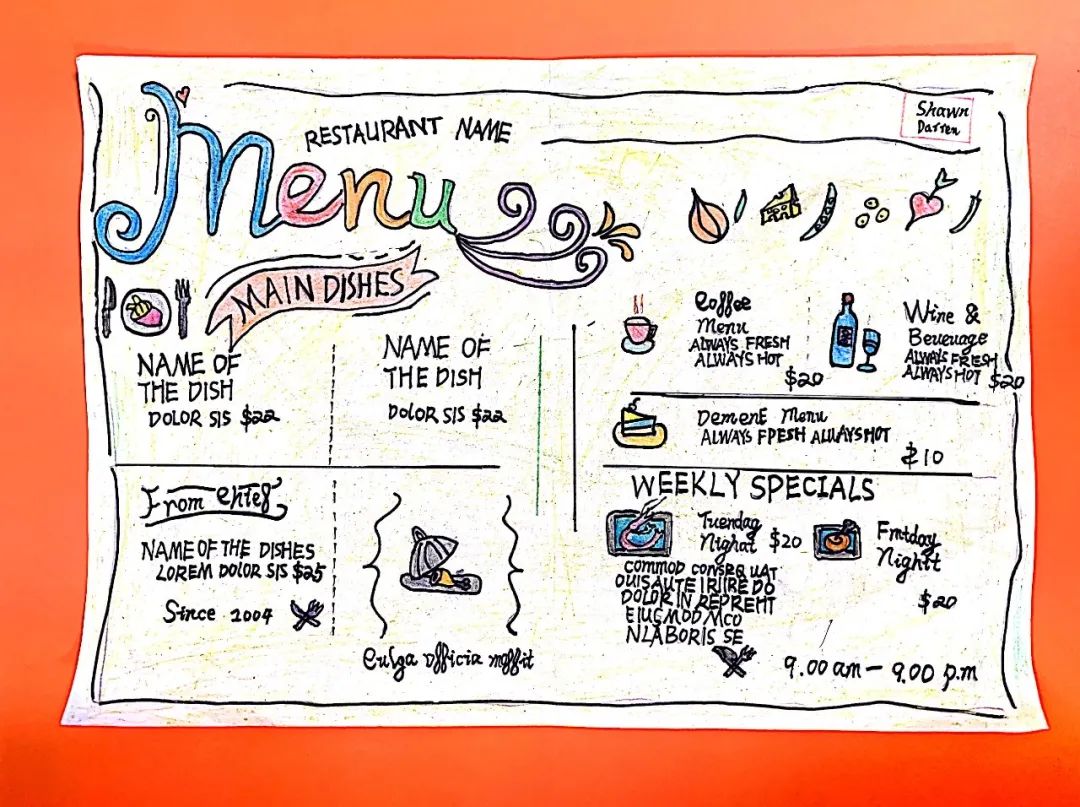 RESTAURANT NAME
Shawn
Darren
Menu
MAIN DISHES
NAME OF
THE DISH
DOLOR SIS $22
NAME OF
THE DISH
DOLOR SIS $22
Coffee
Menu
ALWAYS FRESH
ALWAYS HOT
$20
Wine &
Beverage
ALWAYS FRESH
ALWAYS HOT $20
Dement Menu
ALWAYS FPESH ALWAYS HOT
$10
From
NAME OF THE DISHES
LOREM DOLOR SIS $25
Since 2004
officia moffit
WEEKLY SPECIALS
Tuendag
Nighat $20
COMMOD CONSEQUAT
DUISAUTE IRIIRE DO
DOLOR IN REPREHT
EIUSMOD MCO
NLABORIS SE
Frtday
Nightt
$20
9.00 am - 9.00 p.m